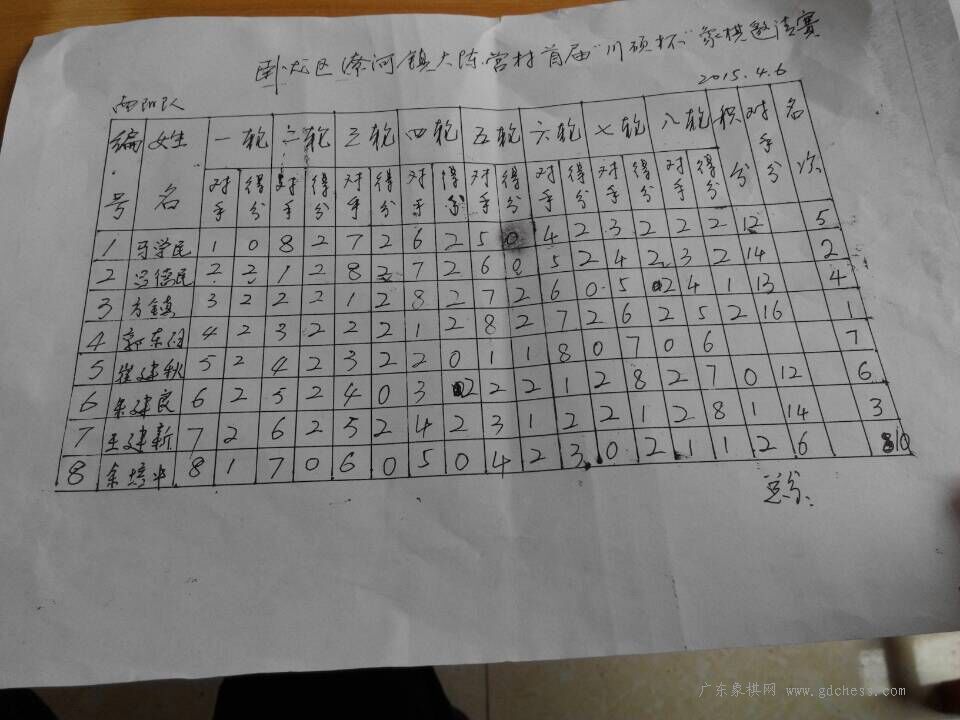 卧龙区潦河镇大陈营村首届"川硕杯"象棋邀请赛
2015.4.6
南阳队
编号 姓名 一轮 二轮 三轮 四轮 五轮 六轮 七轮 八轮 积分 对手分 名次
对手 得分 对手 得分 对手 得分 对手 得分 对手 得分 对手 得分 对手 得分 对手 得分
1 马学民 1 0 8 2 7 2 6 2 5 0 4 2 3 2 2 2 12 5
2 吕德民 2 2 1 2 8 2 7 2 6 0 5 2 4 2 3 2 14 2
3 方镇 3 2 2 2 1 2 8 2 7 2 6 0 5 2 4 1 13 4
4 郭东 4 2 3 2 2 2 1 2 8 2 7 2 6 2 5 2 16 1
5 崔建秋 5 2 4 2 3 2 2 0 1 1 8 0 7 0 6 7
6 余建良 6 2 5 2 4 0 3 2 2 2 1 2 8 2 7 0 12 6
7 王建新 7 2 6 2 5 2 4 2 3 1 2 2 1 2 8 1 14 3
8 余培 8 1 7 0 6 0 5 0 4 2 3 0 2 1 1 2 6 8
总分
广东象棋网 www.gdchess.com